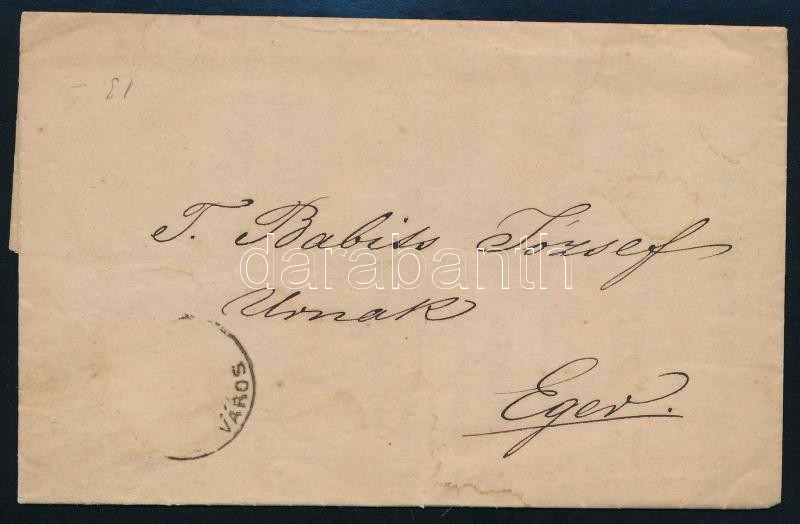 13 -
T. Babits József
darabanth
Urnak
VÁROS
Eger.